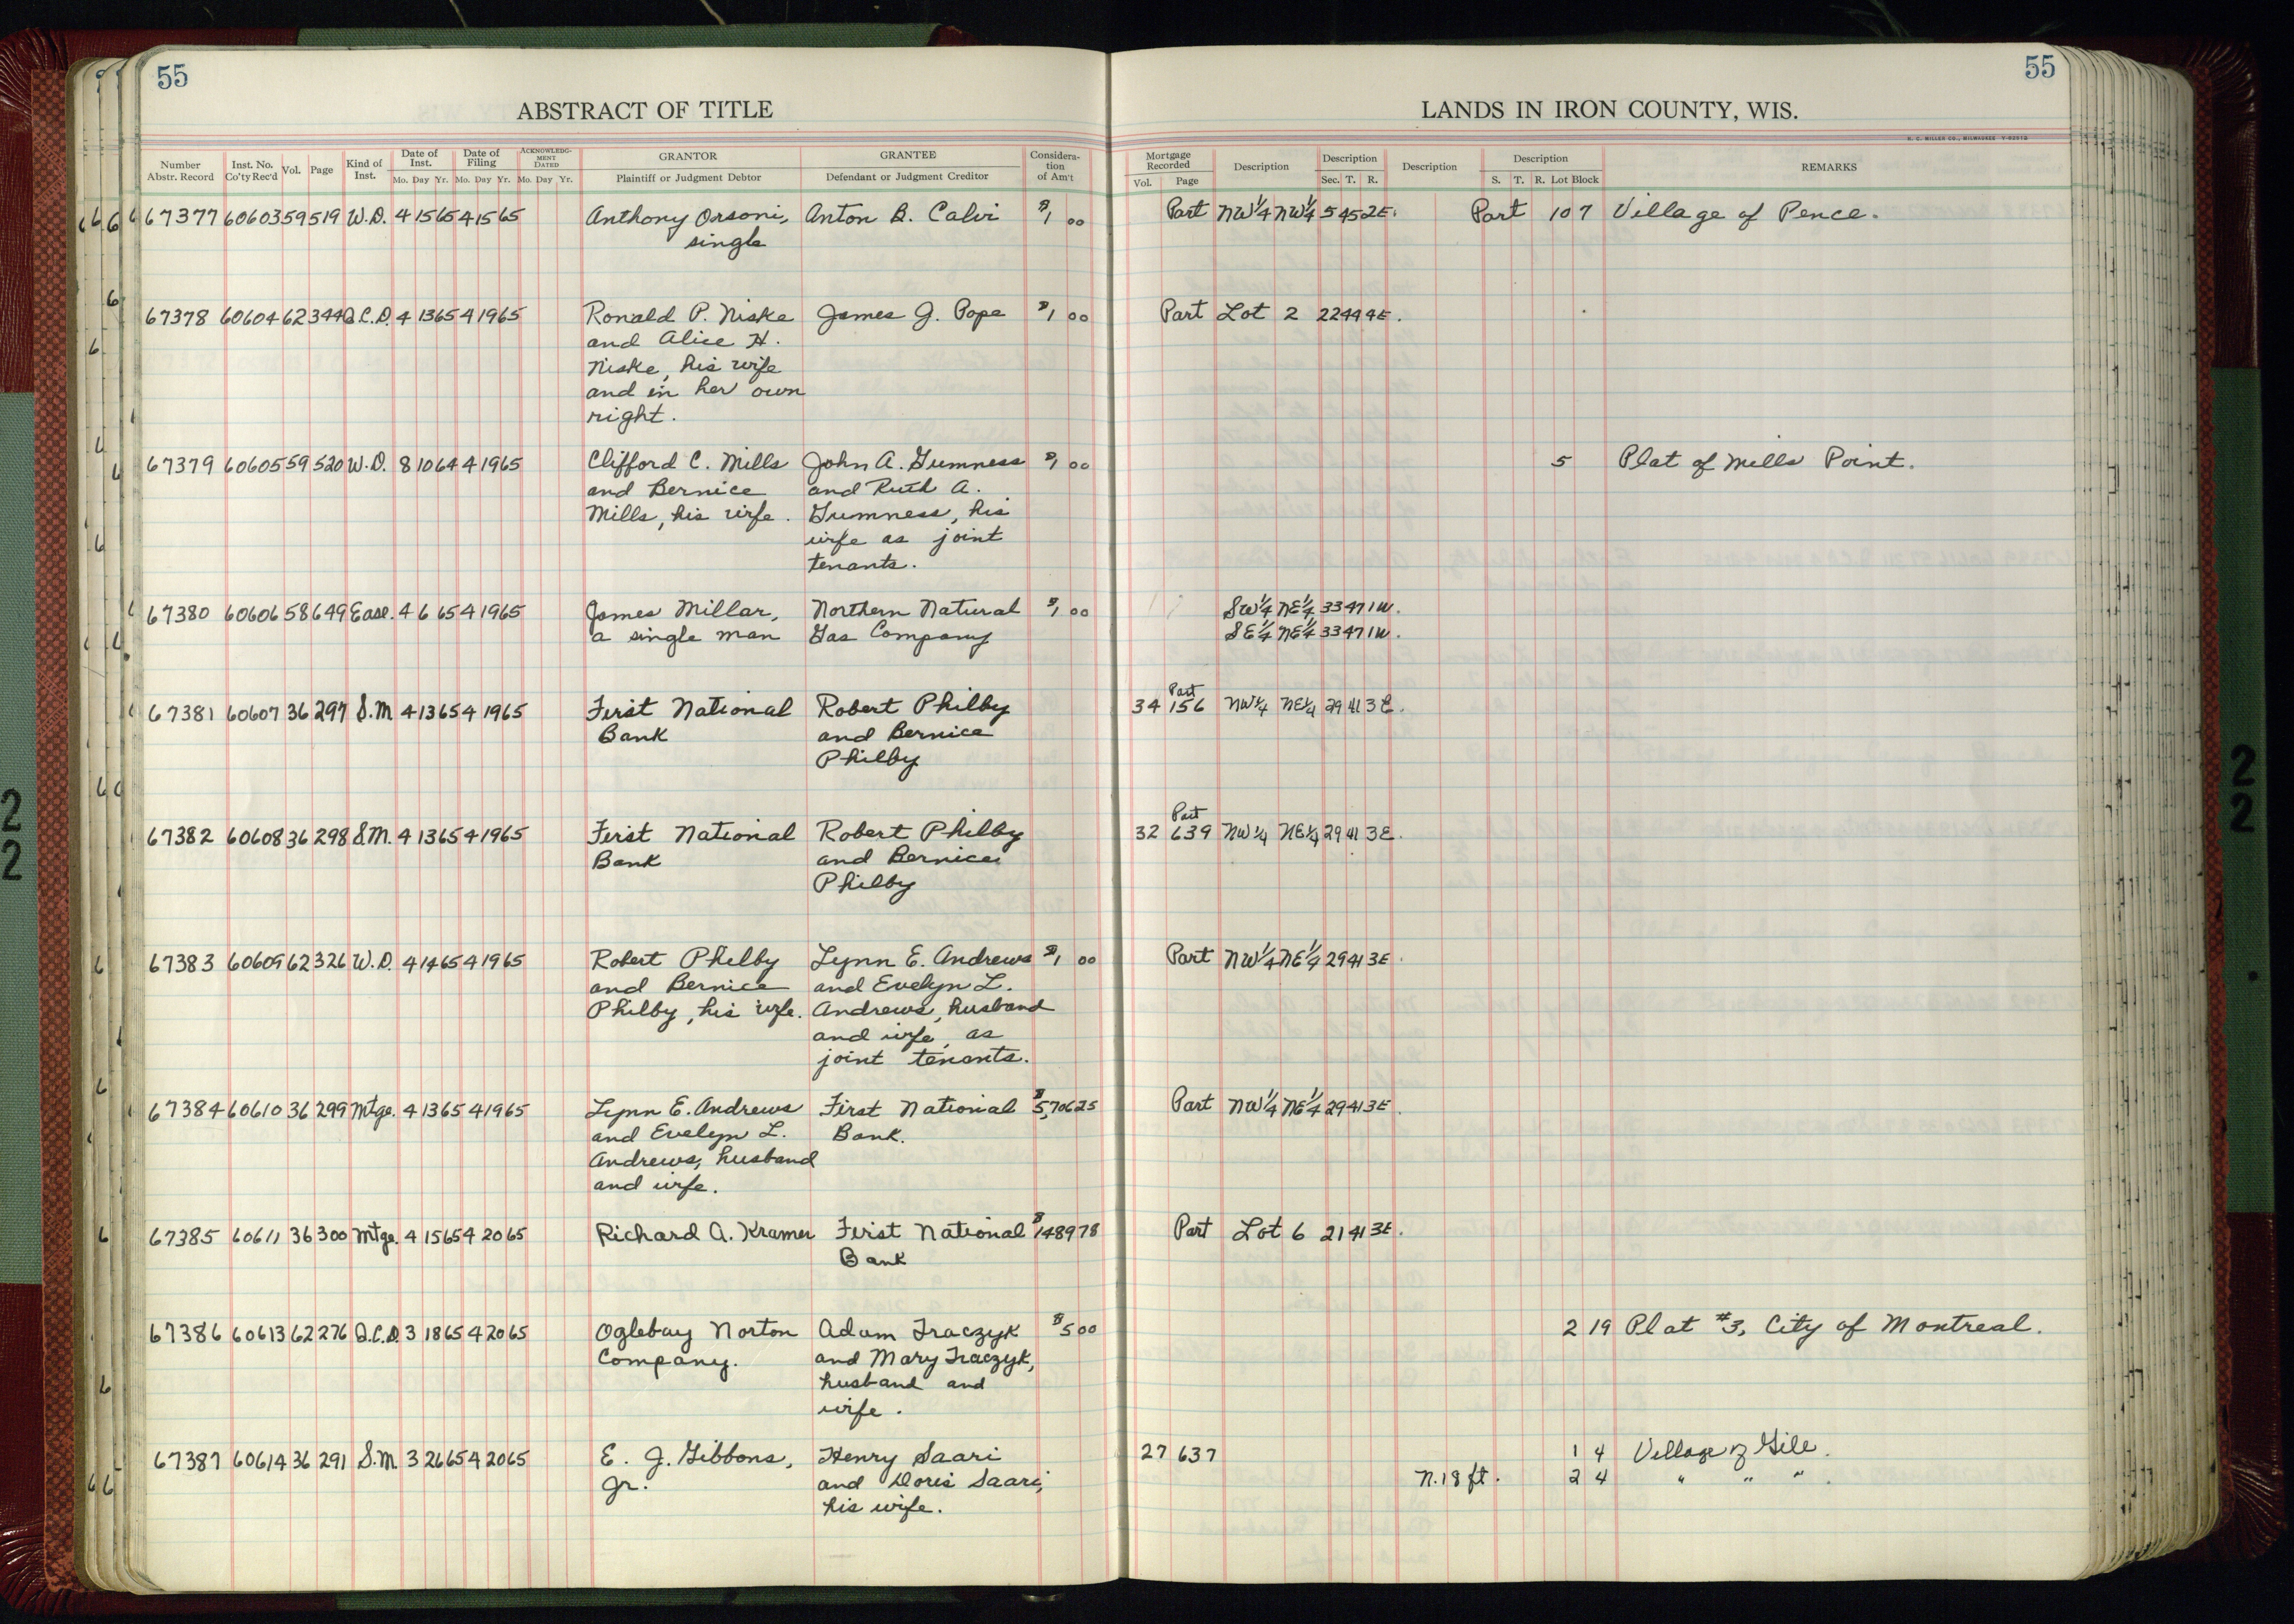 55
55
ABSTRACT OF TITLE
LANDS IN IRON COUNTY, WIS.
H. C. MILLER CO., MILWAUKEE
Number Abstr. Record Inst. No. Co'ty Rec'd Vol. Page Kind of Inst. Date of Inst. Mo. Day Yr. Date of Filing Mo. Day Yr. ACKNOWLEDG-MENT DATED Mo. Day Yr. GRANTOR Plaintiff or Judgment Debtor GRANTEE Defendant or Judgment Creditor Considera-tion of Am't
Mortgage Recorded Vol. Page Description Description Sec. T. R. Description Description S. T. R. Lot Block REMARKS
67377 60603 59 519 W.D. 4 15 65 4 15 65 Anthony Orsoni, Anton B. Calvi $1 00 Part NW¼ NW¼ 5 45 2E. Part 10 7 Village of Pence.
single
67378 60604 62 344 Q.C.D. 4 13 65 4 19 65 Ronald P. Niske James J. Pope $1 00 Part Lot 2 22 44 4E.
and Alice H.
Niske, his wife
and in her own
right.
67379 60605 59 520 W.D. 8 10 64 4 19 65 Clifford C. Mills John A. Gumness $1 00 5 Plat of Mills Point.
and Bernice and Ruth A.
Mills, his wife. Gumness, his
wife as joint
tenants.
67380 60606 58 649 Ease. 4 6 65 4 19 65 James Millar, Northern Natural $1 00 SW¼ NE¼ 33 47 1W.
a single man Gas Company SE¼ NE¼ 33 47 1W.
67381 60607 36 297 S.M. 4 13 65 4 19 65 First National Robert Philby 34 156 Part NW¼ NE¼ 29 41 3E.
Bank and Bernice
Philby
67382 60608 36 298 S.M. 4 13 65 4 19 65 First National Robert Philby 32 639 Part NW¼ NE¼ 29 41 3E.
Bank and Bernice
Philby
67383 60609 62 326 W.D. 4 14 65 4 19 65 Robert Philby Lynn E. Andrews $1 00 Part NW¼ NE¼ 29 41 3E.
and Bernice and Evelyn L.
Philby, his wife. Andrews, husband
and wife, as
joint tenants.
67384 60610 36 299 Mtge. 4 13 65 4 19 65 Lynn E. Andrews First National $5,706 25 Part NW¼ NE¼ 29 41 3E.
and Evelyn L. Bank.
Andrews, husband
and wife.
67385 60611 36 300 Mtge. 4 15 65 4 20 65 Richard A. Kramer First National $1489 78 Part Lot 6 21 41 3E.
Bank
67386 60613 62 276 Q.C.D. 3 18 65 4 20 65 Oglebay Norton Adam Traczyk $5 00 2 19 Plat #3, City of Montreal.
Company. and Mary Traczyk,
husband and
wife.
67387 60614 36 291 S.M. 3 26 65 4 20 65 E. J. Gibbons, Henry Saari 27 637 1 4 Village of Gile.
Jr. and Doris Saari, N. 18 ft. 2 4 " " ".
his wife.
2
2
2
2